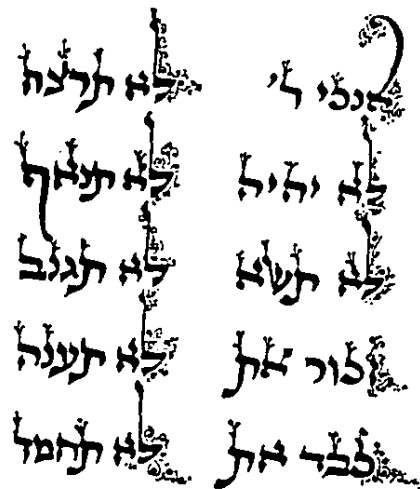 אנכי
לא יהיה
לא תשא
זכור את
כבד את
לא תרצח
לא תנאף
לא תגנב
לא תענה
לא תחמד